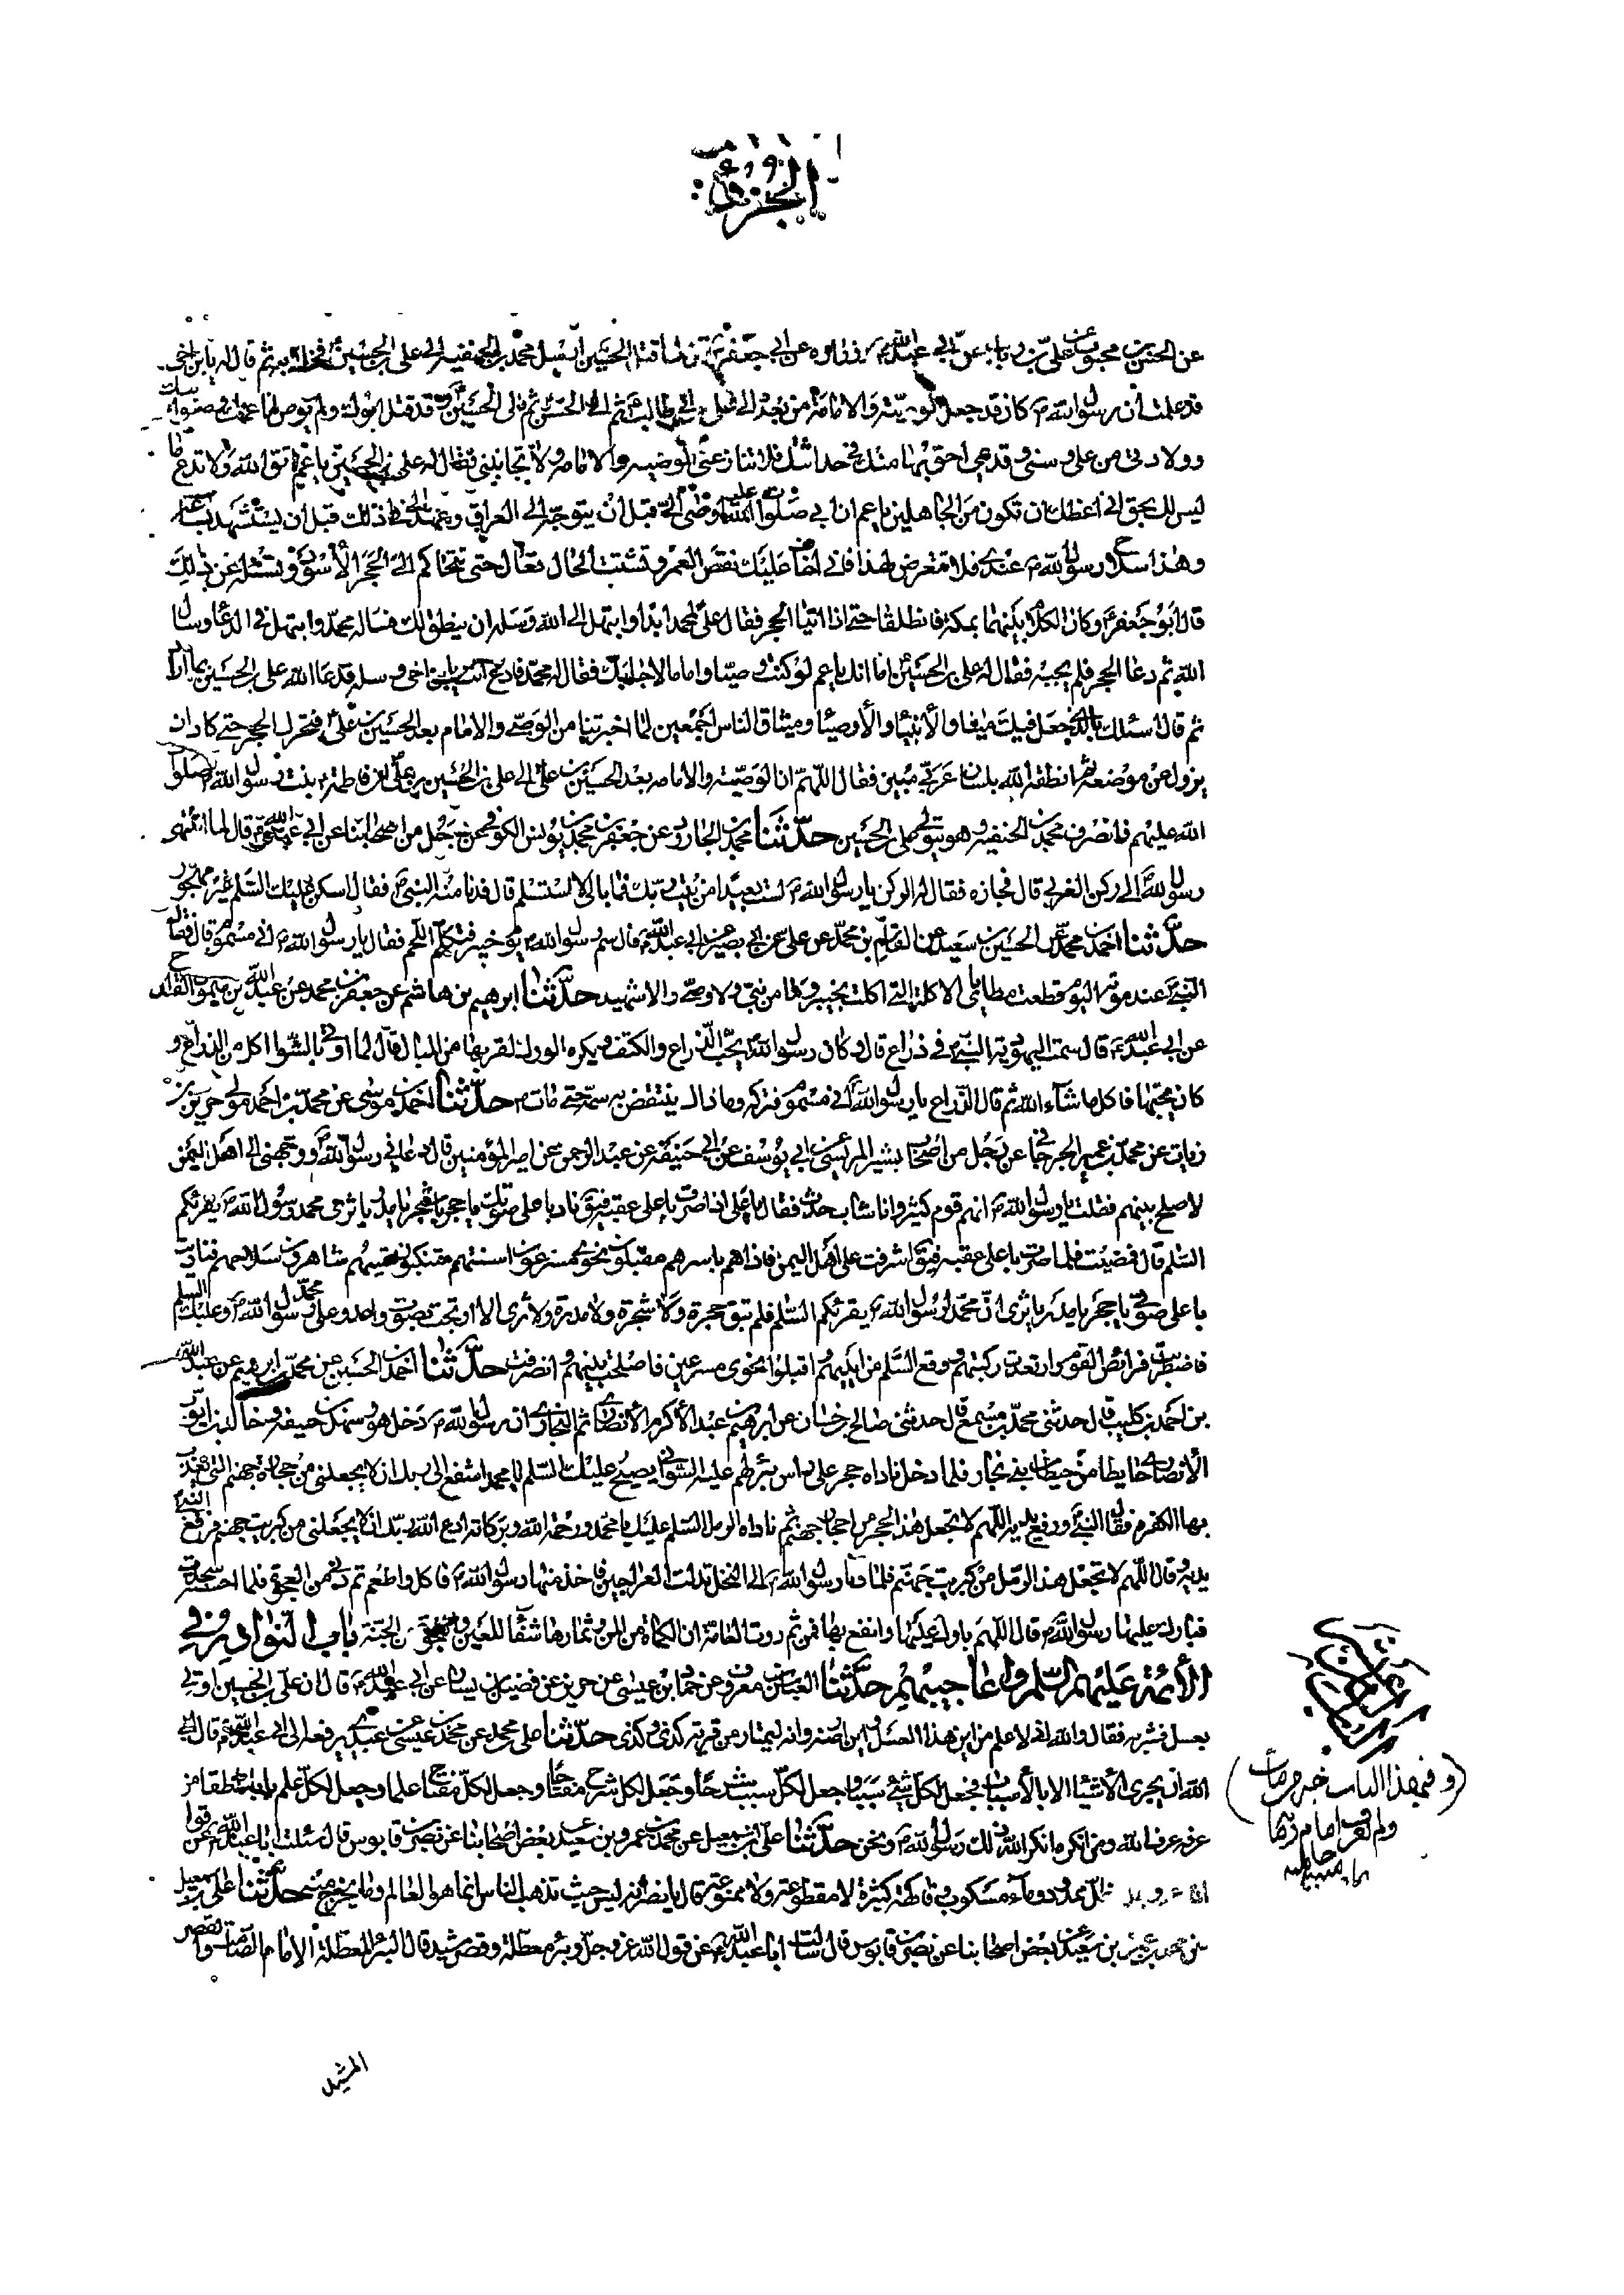 الجزء
عن الحسن بن محبوب عن علي بن رئاب عن أبي عبد الله وزراره عن ابي جعفر قال لما قتل الحسين ارسل محمد بن الحنفيه الى علي بن الحسين فخلا به ثم قال له يابن اخي
قد علمت ان رسول الله ص كان قد جعل الوصيته والامامة من بعده الى علي بن ابي طالب ثم الى الحسن ثم الى الحسين وقد قتل ابوك ولم يوص وانا عمك وصنو ابيك
وولادتي من علي و سني و قدمي احق بها منك في حداثتك فلا تنازعني الوصيه والامامه ولا تجانبني فقال له علي بن الحسين يا عم اتق الله ولا تدع ما
ليس لك بحق اني اعظك ان تكون من الجاهلين يا عم ان ابي صلوات الله عليه اوصى الي قبل ان يتوجه الى العراق وعهد الي في ذلك قبل ان يستشهد بساعة
وهذا سلاح رسول الله ص عندي فلا تتعرض لهذا فاني اخاف عليك نقص العمر وتشتت الحال تعال حتى نتحاكم الى الحجر الأسود ونسئله عن ذلك
قال ابو جعفر وكان الكلام بينهما بمكة فانطلقا حتى اذا اتيا الحجر فقال علي لمحمد ابدا وابتهل الى الله وسله ان ينطق لك فساله محمد وابتهل في الدعا وسال
الله ثم دعا الحجر فلم يجبه فقال له علي بن الحسين اما انك يا عم لو كنت وصيا واماما لاجابك فقال له محمد فادع انت يابن اخي وسله فدعا الله علي بن الحسين بما اراد
ثم قال اسئلك بالذي جعل فيك ميثاق الأنبياء والأوصياء وميثاق الناس اجمعين لما اخبرتنا من الوصي والامام بعد الحسين بن علي فتحرك الحجر حتى كاد ان
يزول عن موضعه ثم انطقه الله بلسان عربي مبين فقال اللهم ان الوصيته والامامه بعد الحسين بن علي الى علي بن الحسين بن علي ابن فاطمة بنت رسول الله صلوات
الله عليهم فانصرف محمد بن الحنفيه وهو يتولى علي بن الحسين حدثنا محمد بن الجارود عن جعفر بن محمد بن يونس الكوفي عن رجل من اصحابنا عن ابي عبد الله قال لما انتهى
رسول الله الى ركن الغربي قال فجازه فقال له الركن يا رسول الله ص الست بعيدا من بيت ربك فما بالي لا استلم قال فدنا منه النبي فقال اسكن عليك السلم غير مهجور
حدثنا احمد بن محمد عن الحسين بن سعيد عن القاسم بن محمد عن علي عن ابي بصير عن ابي عبد الله قال سم رسول الله ص يوم خيبر فتكلم اللحم فقال يا رسول الله ص اني مسموم قال فقال
النبي عند موته اليوم قطعت مطاياي الاكلة التي اكلت بخيبر وما من نبي ولا وصي والا شهيد حدثنا ابرهيم بن هاشم عن جعفر بن محمد عن عبد الله بن ميمون القداح
عن ابي عبد الله ع قال سمت اليهودية النبي في ذراع قال و كان رسول الله ص يحب الذراع والكتف ويكره الورك لقربها من المبال قال لما اوتي بالشواء اكل من الذراع و
كان يحبها فاكل ما شاء الله ثم قال الذراع يا رسول الله اني مسموم فتركه وما زال ينتقض به سمه حتى مات ص حدثنا احمد بن موسى عن محمد بن احمد مولى حرب بن
زيات عن محمد بن عمير الجرجاني عن رجل من اصحاب بشير المريسي عن ابي يوسف عن ابي حنيفة عن عبد الرحمن عن امير المؤمنين قال دعاني رسول الله ووجهني الى اهل اليمن
لاصلح بينهم فقلت يا رسول الله ص انهم قوم كثير وانا شاب حدث فقال يا علي اذا صرت باعلى عقبه فيق ناد باعلى صوتك يا حجر يا شجر يا مدر يا ثرى محمد رسول الله يقرئكم
السلم قال فمضيت فلما صرت باعلى عقبه فيق اشرفت على اهل اليمن فاذا هم باسرهم مقبلون نحوي مسرعون اسنتهم متنكبون قسيهم شاهرون سلاحهم فناديت
باعلى صوتي يا حجر يا مدر يا ثرى ان محمدا رسول الله ص يقرئكم السلم فلم تبق حجرة ولا شجرة ولا مدرة ولا ثرى الا ارتجت بصوت واحد وعلى محمد رسول الله ص وعليك السلم
فاضطربت فرائص القوم وارتعدت ركبهم و وقع السلم من ايديهم و اقبلوا نحوي مسرعين فاصلحت بينهم و انصرفت حدثنا احمد بن الحسين عن محمد بن ابرهيم عن عبد الله
بن احمد بن كليب قال حدثني محمد بن مسمع قال حدثني صالح بن حسان عن ابرهيم بن عبد الأكرم الأنصاري ثم النجاري ان رسول الله ص دخل هو وسهل بن حنيف و خالد بن ايوب
الأنصاري حايطا من حيطان بني نجار فلما دخل ناداه حجر على راس بئر لهم عليها السواني يصيح عليك السلم يا محمد اشفع الى ربك ان لا يجعلني من حجارة جهنم التي يعذب
بها الكفرة فقال النبي و رفع يديه اللهم لا تجعل هذا الحجر من احجار جهنم ثم ناداه الرمل السلم عليك يا محمد ورحمة الله وبركاته ادع الله ربك ان لا يجعلني من كبريت جهنم فرفع النبي
يديه و قال اللهم لا تجعل هذا الرمل من كبريت جهنم فلما دنا رسول الله ص الى النخل تدلت العراجين فاخذ منها رسول الله ص فاكل واطعم ثم دنى من العجوة فلما احسته سجدت
فبارك عليها رسول الله ص قال اللهم بارك عليها وانفع بها فمن ثم روت العامة ان الكماة من المن و ماؤها شفاء للعين والعجوة من الجنة باب النوادر في
الأئمة عليهم السلم و اعاجيبهم حدثنا العباس بن معروف عن حماد بن عيسى عن حريز عن فضيل بن يسار عن ابي عبد الله ع قال ان علي بن الحسين اوتي
بعسل فشربه فقال والله اني لاعلم من اين هذا العسل واين ارضه وانه ليمتار من قرية كذى وكذى حدثنا علي بن محمد عن محمد بن عيسى عن عبيد يرفعه الى ابي عبد الله قال ابى
الله ان يجرى الأشياء الا بالأسباب فجعل لكل شيء سببا و جعل لكل سبب شرحا وجعل لكل شرح مفتاحا وجعل لكل مفتاح علما وجعل لكل علم بابا ناطقا من
عرفه عرف الله ومن انكره انكر الله ذلك رسول الله ص ونحن حدثنا علي بن اسمعيل عن محمد بن عمرو بن سعيد عن بعض اصحابنا عن نصر بن قابوس قال سئلت ابا عبد الله ع عن قول
الله عز وجل وظل ممدود وماء مسكوب وفاكهة كثيرة لا مقطوعة ولا ممنوعة قال يا نصر انه ليس حيث تذهب الناس انما هو العالم وما يخرج منه حدثنا علي بن اسمعيل
عن محمد بن عمرو بن سعيد عن بعض اصحابنا عن نصر بن قابوس قال سالت ابا عبد الله ع عن قول الله عز وجل وبئر معطلة وقصر مشيد قال البئر المعطلة الامام الصامت والقصر
المشيد
(وفي هذا الباب